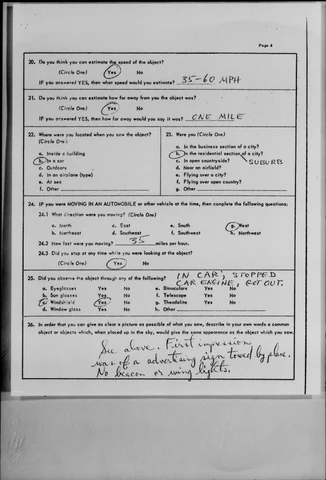 Page 4
20. Do you think you can estimate the speed of the object?
(Circle One) Yes No
IF you answered YES, then what speed would you estimate? 35-60 MPH
21. Do you think you can estimate how far away from you the object was?
(Circle One) Yes No
IF you answered YES, then how far away would you say it was? ONE MILE
22. Where were you located when you saw the object?
(Circle One):
a. Inside a building
b. In a car
c. Outdoors
d. In an airplane (type)
e. At sea
f. Other
23. Were you (Circle One)
a. In the business section of a city?
b. In the residential section of a city?
c. In open countryside? SUBURB
d. Near an airfield?
e. Flying over a city?
f. Flying over open country?
g. Other
24. IF you were MOVING IN AN AUTOMOBILE or other vehicle at the time, then complete the following questions:
24.1 What direction were you moving? (Circle One)
a. North c. East e. South g. West
b. Northeast d. Southeast f. Southwest h. Northwest
24.2 How fast were you moving? 35 miles per hour.
24.3 Did you stop at any time while you were looking at the object?
(Circle One) Yes No
25. Did you observe the object through any of the following? IN CAR; STOPPED
CAR ENGINE, GOT OUT.
a. Eyeglasses Yes No e. Binoculars Yes No
b. Sun glasses Yes No f. Telescope Yes No
c. Windshield Yes No g. Theodolite Yes No
d. Window glass Yes No h. Other
26. In order that you can give as clear a picture as possible of what you saw, describe in your own words a common
object or objects which, when placed up in the sky, would give the same appearance as the object which you saw.
See above. First impression
was of a advertising sign towed by plane.
No beacon or wing lights.